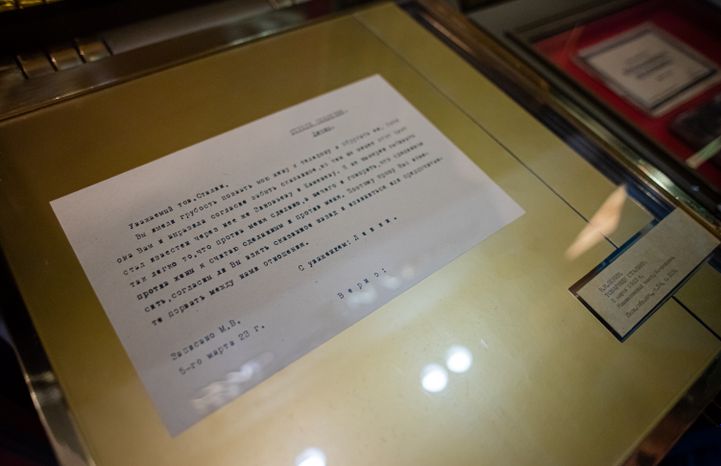 СТРОГО СЕКРЕТНО.
Лично.
Уважаемый тов.Сталин,
Вы имели грубость позвать мою жену к телефону и обругать ее. Хотя
она Вам и выразила согласие забыть сказанное, но тем не менее этот факт
стал известен через нее же Зиновьеву и Каменеву. Я не намерен забывать
так легко то, что против меня сделано, а нечего и говорить, что сделанное
против жены я считаю сделанным и против меня. Поэтому прошу Вас взве-
сить, согласны ли Вы взять сказанное назад и извиниться или предпочитае-
те порвать между нами отношения.
С уважением: Ленин.
Верно:
Записано М.В.
5-го марта 23 г.